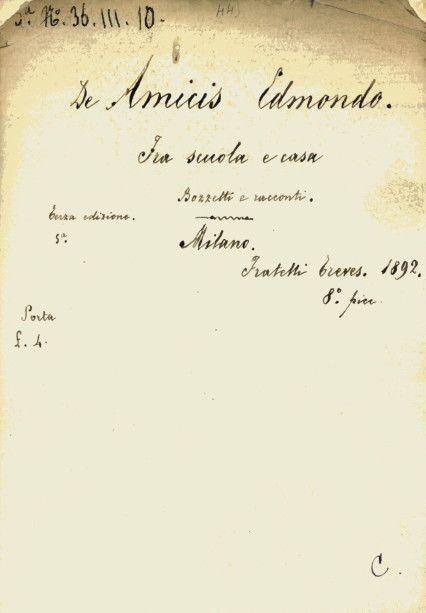 5ª Nº 36. III. 10.
44)
De Amicis Edmondo.
Fra scuola e casa
Bozzetti e racconti.
Terza edizione.
5ª.
Milano.
Fratelli Treves. 1892.
8.º picc.
Porta
£. 4.
C.